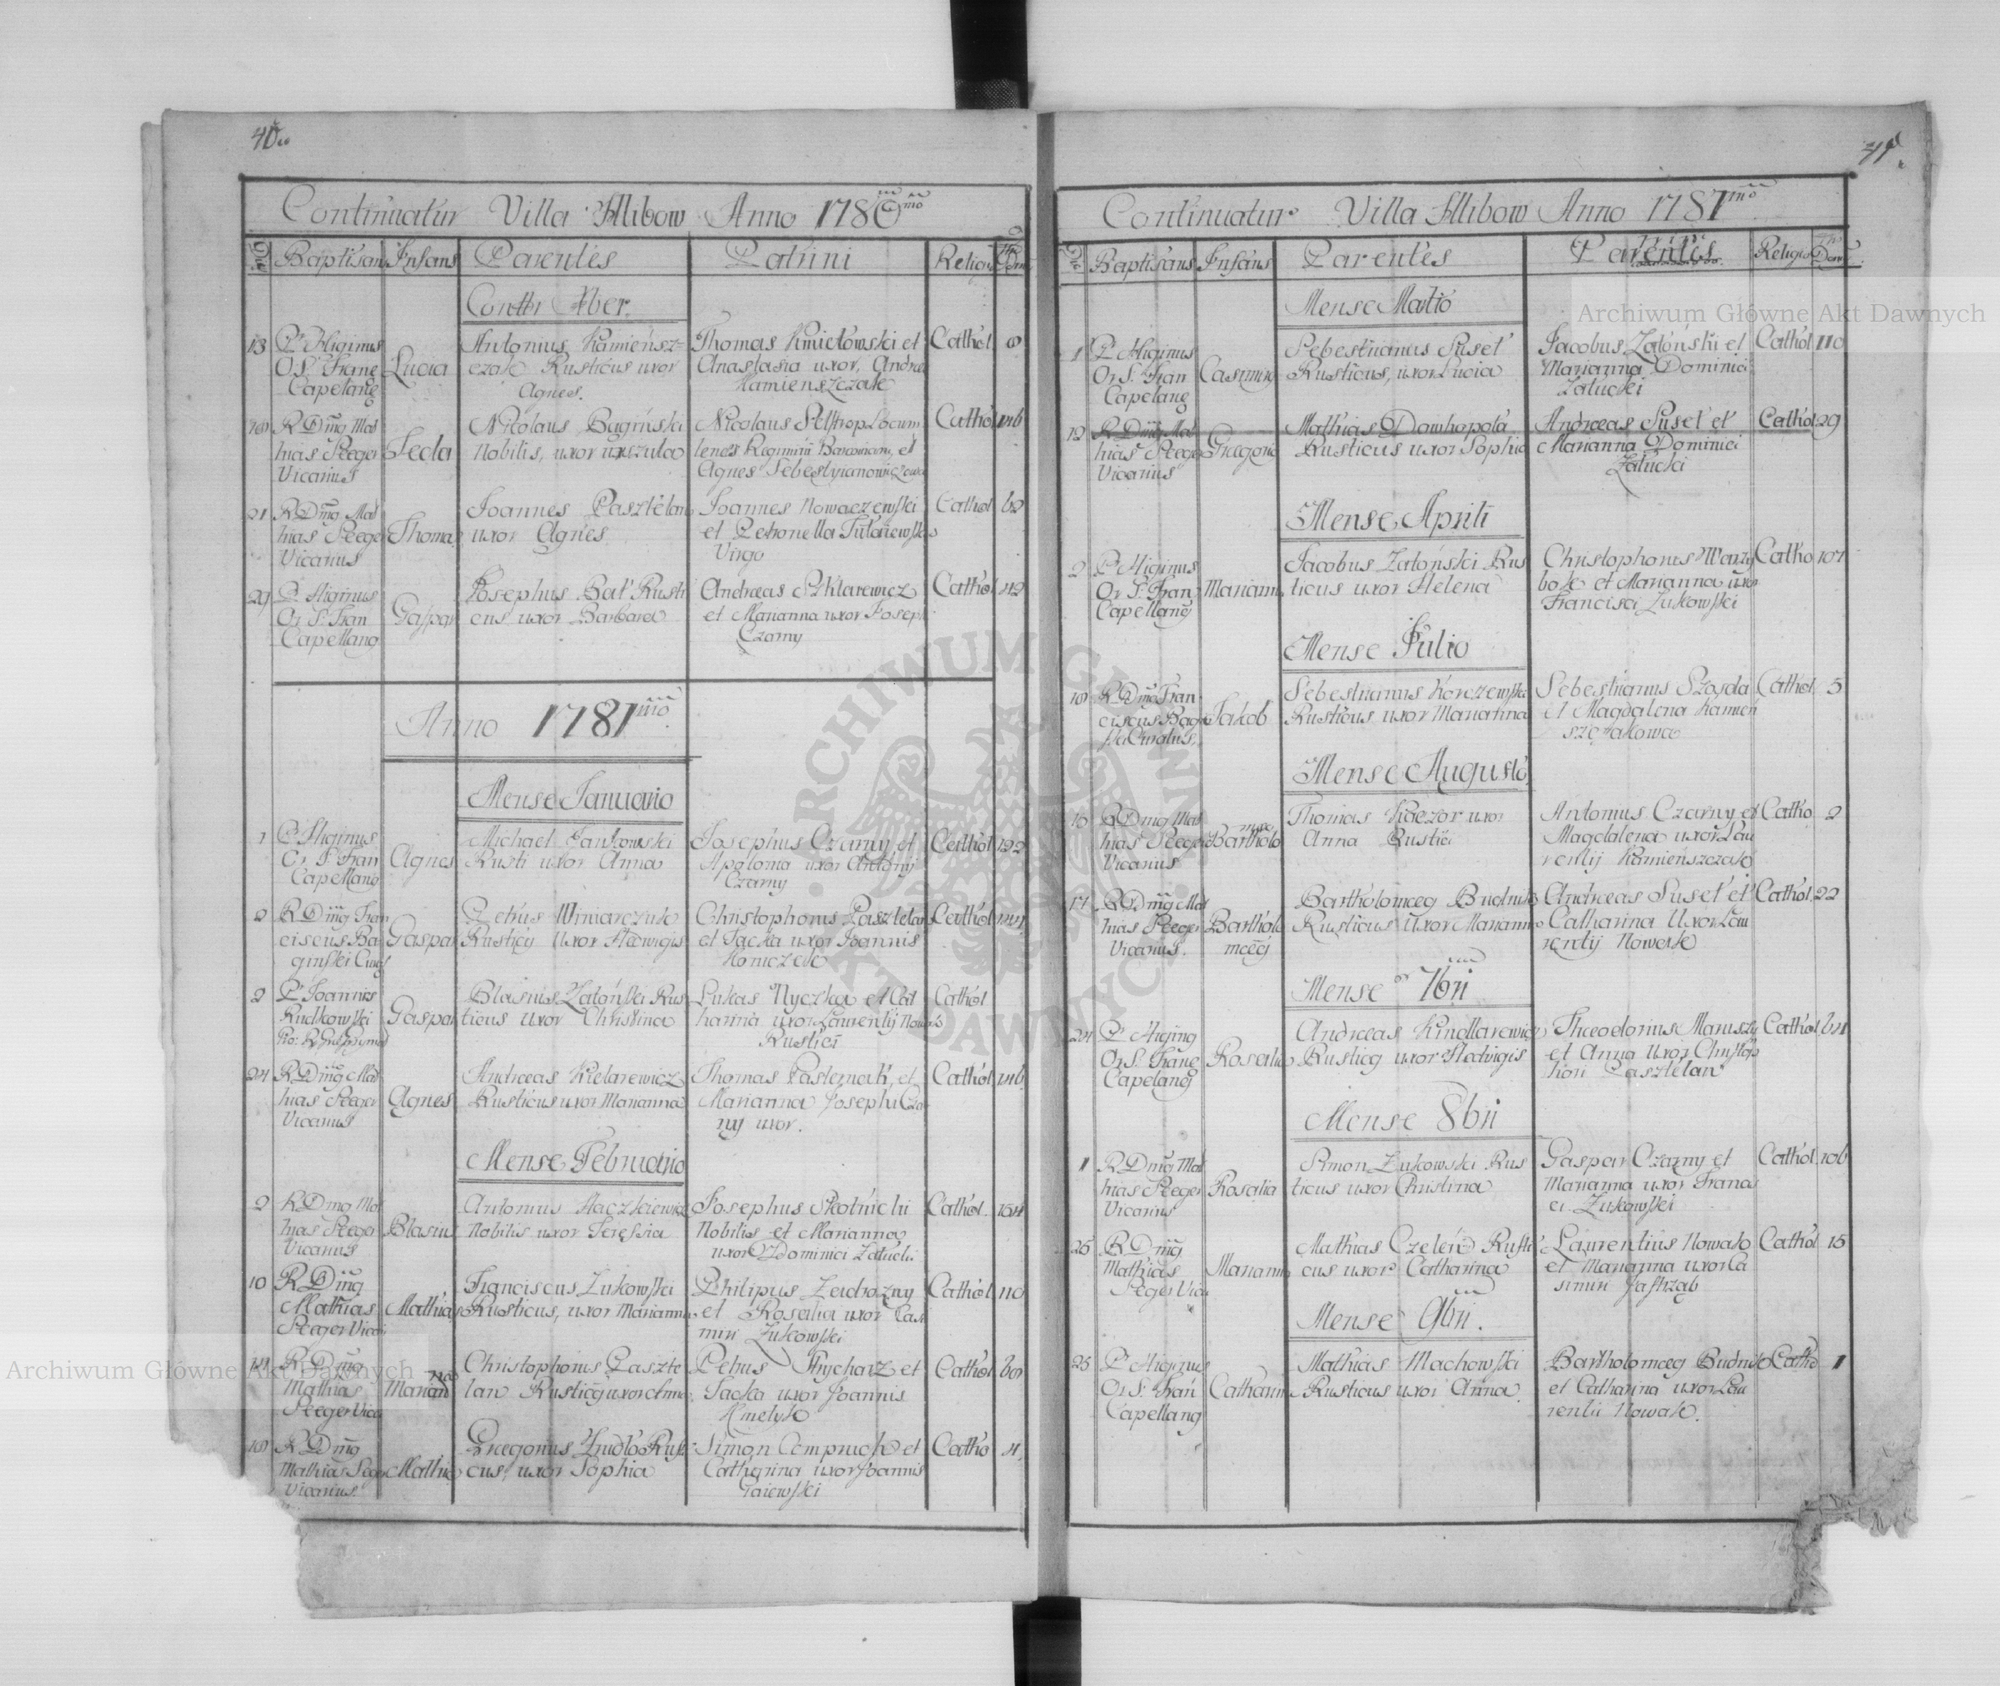 40
Continuatur Villa Hlibow Anno 1780mo
Dies Baptisans Infans Parentes Patrini Religio No Domus
Conttr Xber.
13 P Higinus Or S. Franc Capelang
Lucia
Antonius Kamiensz-
czak Rusticus uxor
Agnes.
Thomas Kmietowski et
Anastasia uxor, Andreæ
Kamienszczak
Cathol
R Dnũg Mat
hias Peeger
Vicarius
Tecla
Nicolaus Buginski
Nobilis, uxor urszula
Agnes Sebestyianowiczowa
Catho 146
21 R Dnũg Mat
hias Peeger
Vicarius
Thomas
Joannes Pasztelan
uxor Agnes
Joannes Nowaczewski
et Petronella Tulanewska
Virgo
Cathol 62
29 P Higinus
Or S. Fran
Capellang
Gaspar
Josephus Bat Rusti
cus uxor Barbara
Andreas Szklarewicz
et Marianna uxor Joseph
Czarny
Cathol 42
Anno 1781mo
Mense Januario
1 P Higinus
Or S. Fran
Capellang
Agnes
Michael Jankowski
Rusti uxor Anna
Josephus Czarny et
Apolonia uxor Antony
Czarny
Cathol 122
2 R Dnũg Fran
ciscus Ba
ginski
Gaspar
Petrus Winiarczuk
Rusticg uxor Hedwigis
Christophorus Pasztelan
et Jacka uxor Joannis
Koniczek
Cathol
2 P Joannes
Rudkowski
Gaspar
Blasius Zatonski Rus
ticus uxor Christina
Lukas Nyczka et Cat
harina uxor Laurentij Nowak
Rustici
Cathol
24 R Dnũg Mat
hias Peeger
Vicarius
Agnes
Andreas Kielarewicz
Rusticus uxor Marianna
Thomas Pasternak, et
Marianna Josephi Czar
ny uxor.
Cathol 146
Mense Februario
2 R Dnũg Mat
hias Peeger
Vicarius
Blasius
Antonius Haczkiewicz
Nobilis uxor Teressia
Josephus Skotnichi
Nobilis et Marianna
uxor Dominici Zatucki
Cathol. 154
10 R Dnũg
Mathias
Peeger Vica
Mathias
Franciscus Zukowski
Rusticus, uxor Marianna
Philipus Zadrozny
et Rosalia uxor Casi
miri Zukowski
Cathol 110
14 R Dnũg
Mathias
Peeger Vica
Marianna
Christophorus Paszte
lan Rusticg uxor Anna
Petrus Frycharz et
Jacka uxor Joannis
Kmetyk
Cathol 60
18 R Dnũg
Mathias Peger
Vicarius
Mathias
Gregorius Znidło Rusti
cus, uxor Sophia
Simon Campruch et
Catherina uxor Joannis
Gaiewski
Catho 4
41
Continuatur Villa Hlibow Anno 1781mo
Dies Baptisans Infans Parentes Parentes Religio No Domus
Mense Martio
1 P Higinus
Or S. Fran
Capelang
Casimirg
Sebestianus Suset
Rusticus, uxor Lucia
Jacobus Zatonski et
Marianna Dominici
Zatucki
Cathol 110
12 R Dnũg Mat
hias Peeger
Vicarius
Gregorig
Mathias Dauhopola
Rusticus uxor Sophia
Andreas Suset et
Marianna Dominici
Zatucki
Cathol 29
Mense Aprili
2 P Higinus
Or S. Fran
Capellang
Mariann
Jacobus Zatonski Rus
ticus uxor Helena
Christophorus Wenzy
bok et Marianna uxor
Francisci Zukowski
Catho 107
Mense Julio
18 R Dnũg Fran
ciscus Bagi
ski Curatus
Jakob
Sebestianus Korczewski
Rusticus uxor Marianna
Sebestianus Szajda
et Magdalena Kamien
szczakowa
Cathol 5
Mense Augusto
16 R Dnũg Mat
hias Peeger
Vicarius
Bartholo
mæg
Thomas Kaczor uxor
Anna Rustici
Antonius Czarny et
Magdalena uxor Lau
rentij Kamienszczak
Catho 2
17 R Dnũg Mat
hias Peeger
Vicarius.
Bartholo
mæg
Bartholomæg Budnik
Rusticus uxor Marianna
Andreas Suset et
Catharina Uxor Lau
rentij Nowak
Cathol. 22
Mense 7bri
24 P Higing
Or S. Franc
Capelang
Rosalia
Andreas Kindlarewicz
Rusticg uxor Hedvigis
Theodorius Maruszy
et Anna uxor Christop
hori Pasztelan
Cathol 64
Mense 8bri
1 R Dnũg Mat
hias Peeger
Vicarius
Rosalia
Simon Zukowski Rus
ticus uxor Christina
Gaspar Czarny et
Marianna uxor Francis
ci Zukowski
Cathol. 106
25 R Dnũg
Mathias
Peger Vica
Mariann
Mathias Czelen Rusti
cus uxor Catharina
Laurentius Nowak
et Marianna uxor Ca
simiri Jastrząb
Cathol 15
Mense 9bri.
25 P Higinus
Or S. Fran
Capellang
Catharin
Mathias Machowski
Rusticus uxor Anna
Bartholomæg Budnik
et Catharina uxor Lau
rentii Nowak.
Catho 1
Archiwum Główne Akt Dawnych
Archiwum Główne Akt Dawnych
ARCHIWUM GŁÓWNE AKT DAWNYCH